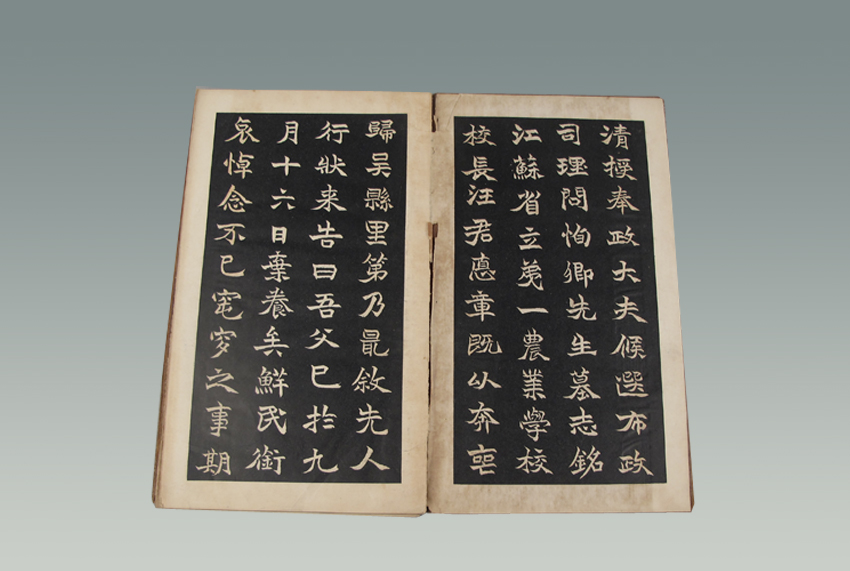 清授奉政大夫候選布政
司理問恂卿先生墓志銘
江蘇省立苐一農業學校
校長汪君悳章既以奔喪
歸吴縣里第乃最敘先人
行狀来告曰吾父已於九
月十六日棄養矣鮮民銜
哀悼念不已窀穸之事期